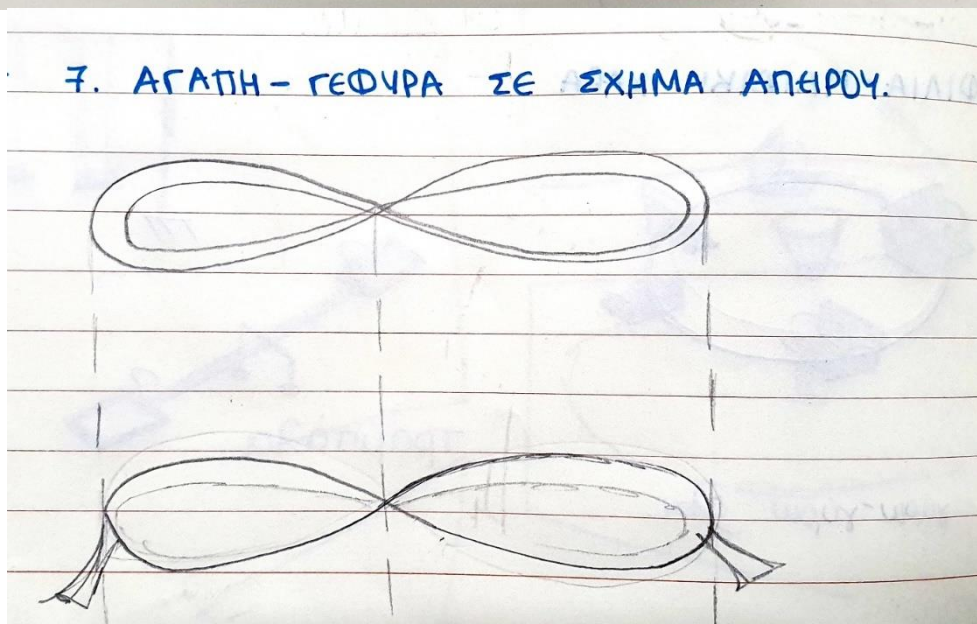 7. ΑΓΑΠΗ – ΓΕΦΥΡΑ ΣΕ ΣΧΗΜΑ ΑΠΕΙΡΟΥ.